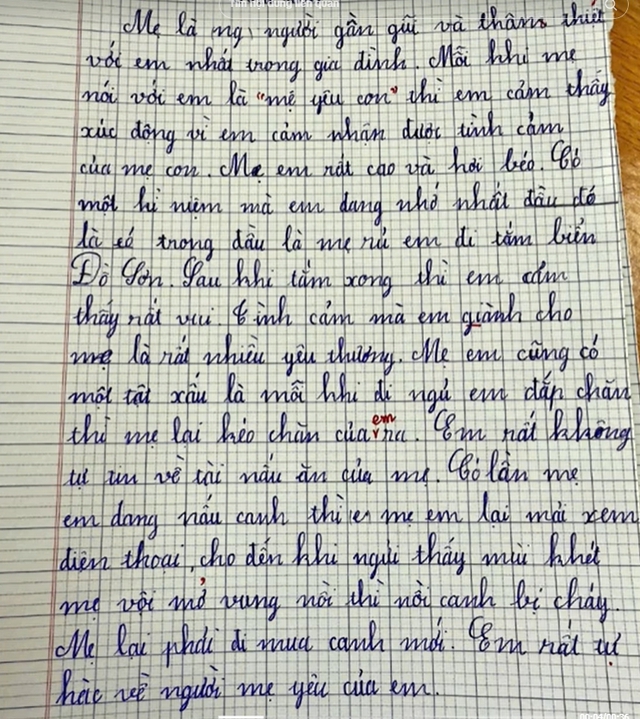 Mẹ là ng người gần gũi và thân thiết
với em nhất trong gia đình. Mỗi khi mẹ
nói với em là "mẹ yêu con" thì em cảm thấy
xúc động vì em cảm nhận được tình cảm
của mẹ con. Mẹ em rất cao và hơi béo. Có
một kỉ niệm mà em đang nhớ nhất đầu đó
là có trong đầu là mẹ rủ em đi tắm biển
Đồ Sơn. Sau khi tắm xong thì em cảm
thấy rất vui. Tình cảm mà em giành cho
mẹ là rất nhiều yêu thương. Mẹ em cũng có
một tật xấu là mỗi khi đi ngủ em đắp chăn
thì mẹ lại kéo chăn của em ra. Em rất không
tự tin về tài nấu ăn của mẹ. Có lần mẹ
em đang nấu canh thì mẹ em lại mải xem
điện thoại, cho đến khi ngửi thấy mùi khét
mẹ vội mở vung nồi thì nồi canh bị cháy.
Mẹ lại phải đi mua canh mới. Em rất tự
hào về người mẹ yêu của em.